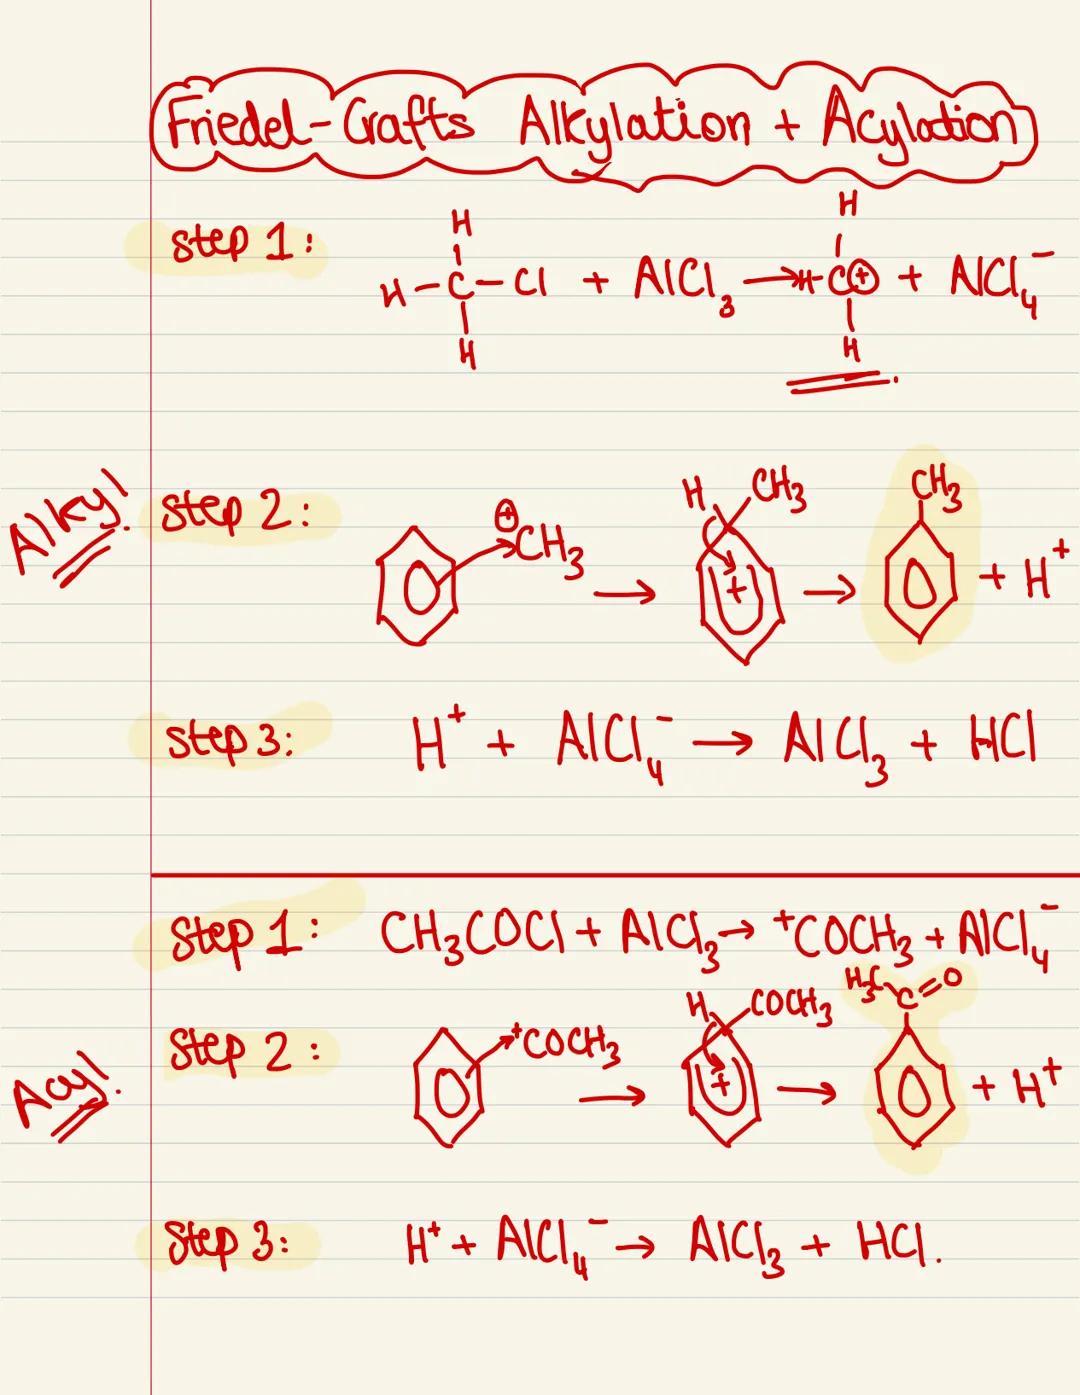 Friedel-Crafts Alkylation + Acylation
step 1:
H
H-C-Cl + AlCl₃ → H-C⊕ + AlCl₄⁻
H
H
H
Alkyl.
step 2:
⊕
CH₃ → H CH₃ + → CH₃ + H⁺
step 3: H⁺ + AlCl₄⁻ → AlCl₃ + HCl
step 1: CH₃COCl + AlCl₃ → ⁺COCH₃ + AlCl₄⁻
Acyl.
step 2: ⁺COCH₃ → H COCH₃ + → H₃C C=O + H⁺
step 3: H⁺ + AlCl₄⁻ → AlCl₃ + HCl.